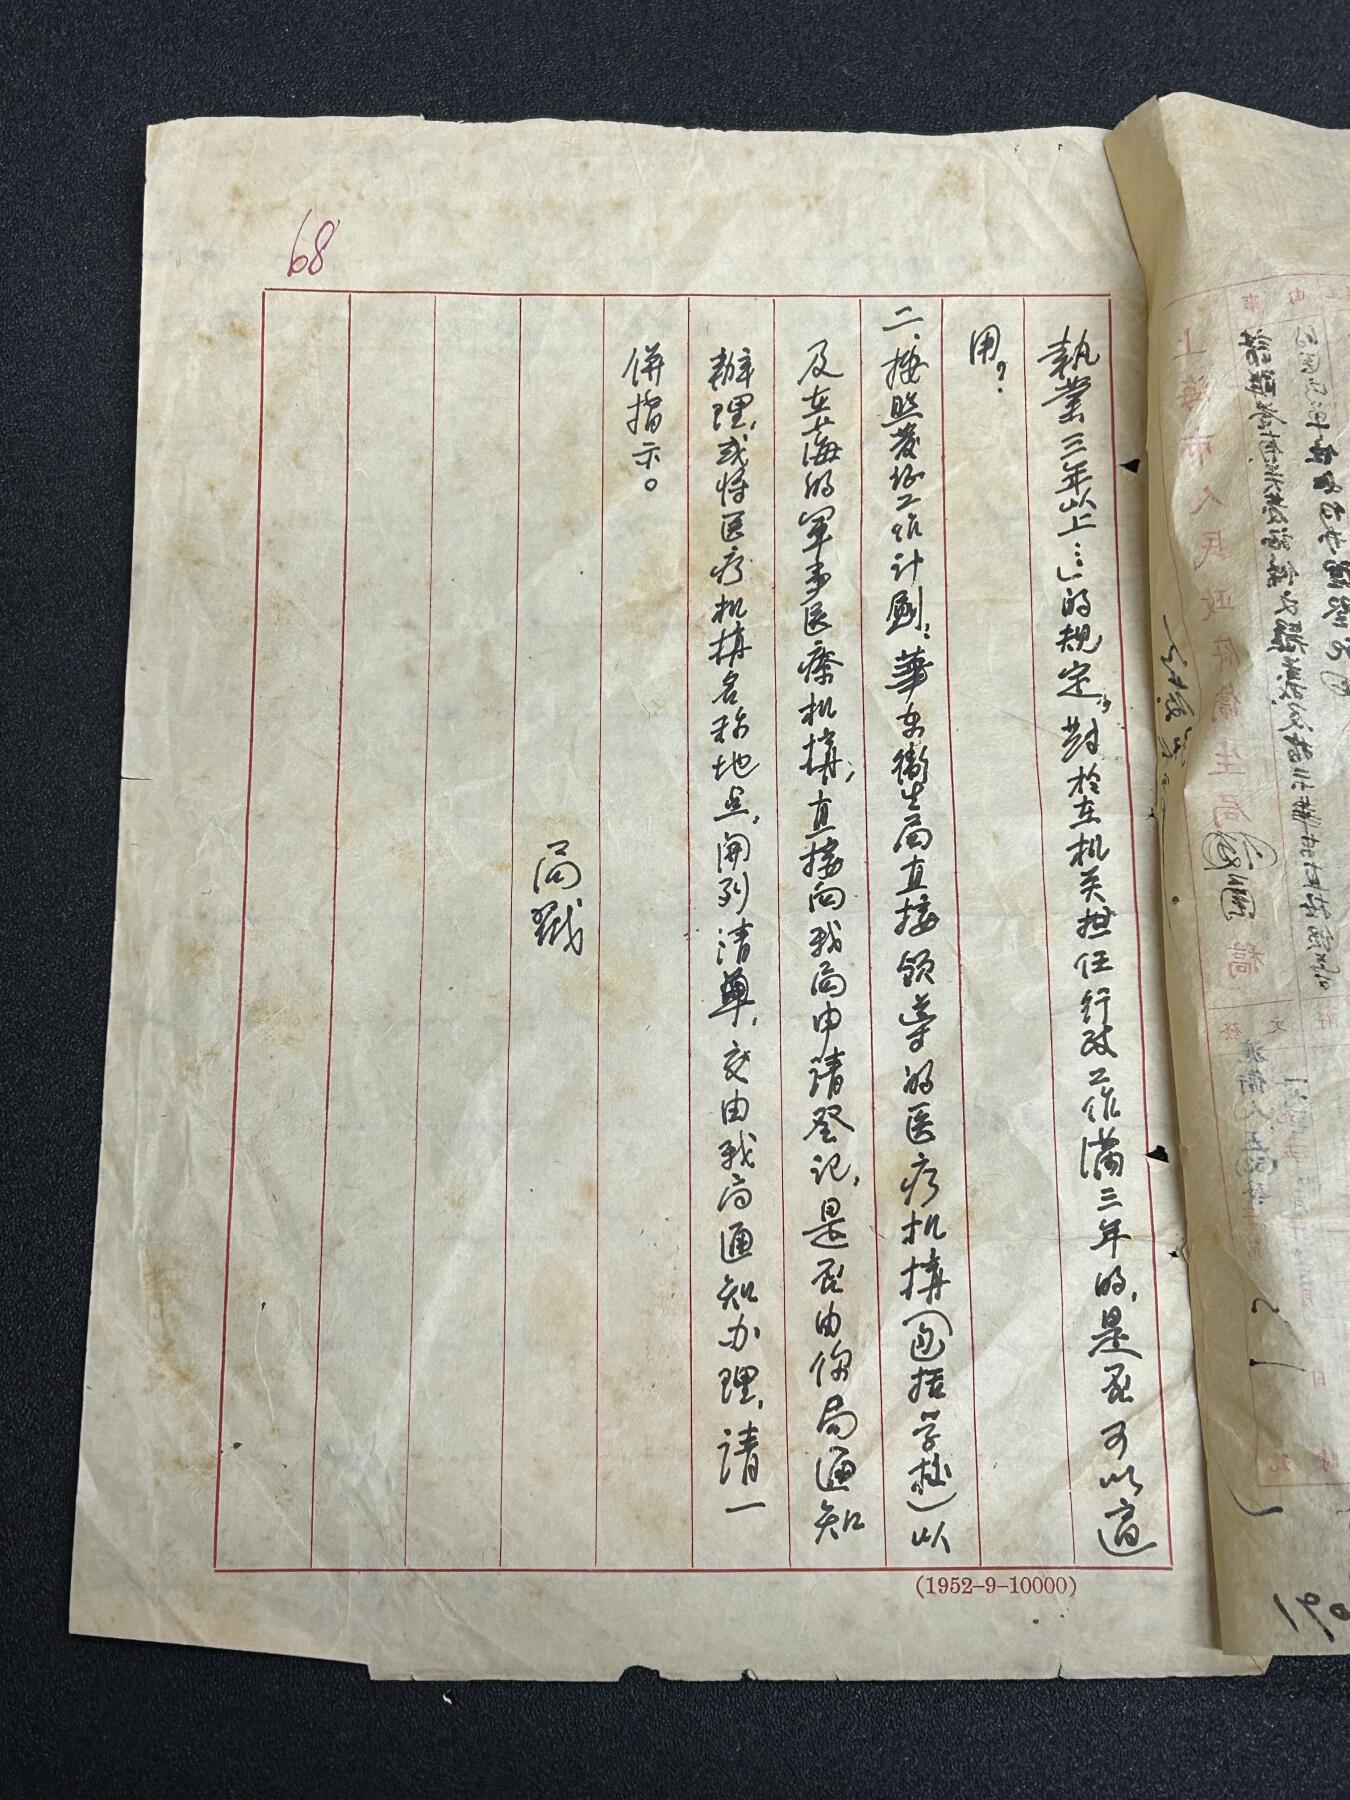 68
執業三年以上…」的規定，對於在机关担任行政工作滿三年的，是否可以適
用？
二、按照發証工作计劃：華东衞生局直接領導的医疗机構（包括学校）以
及在上海的军事医療机構，直接向我局申請登记，是否由你局通知
辦理，或将医疗机構名称地点，開列清單，交由我局通知办理，請一
併指示。
局戳
(1952-9-10000)
上海市人民政府衞生局
稿